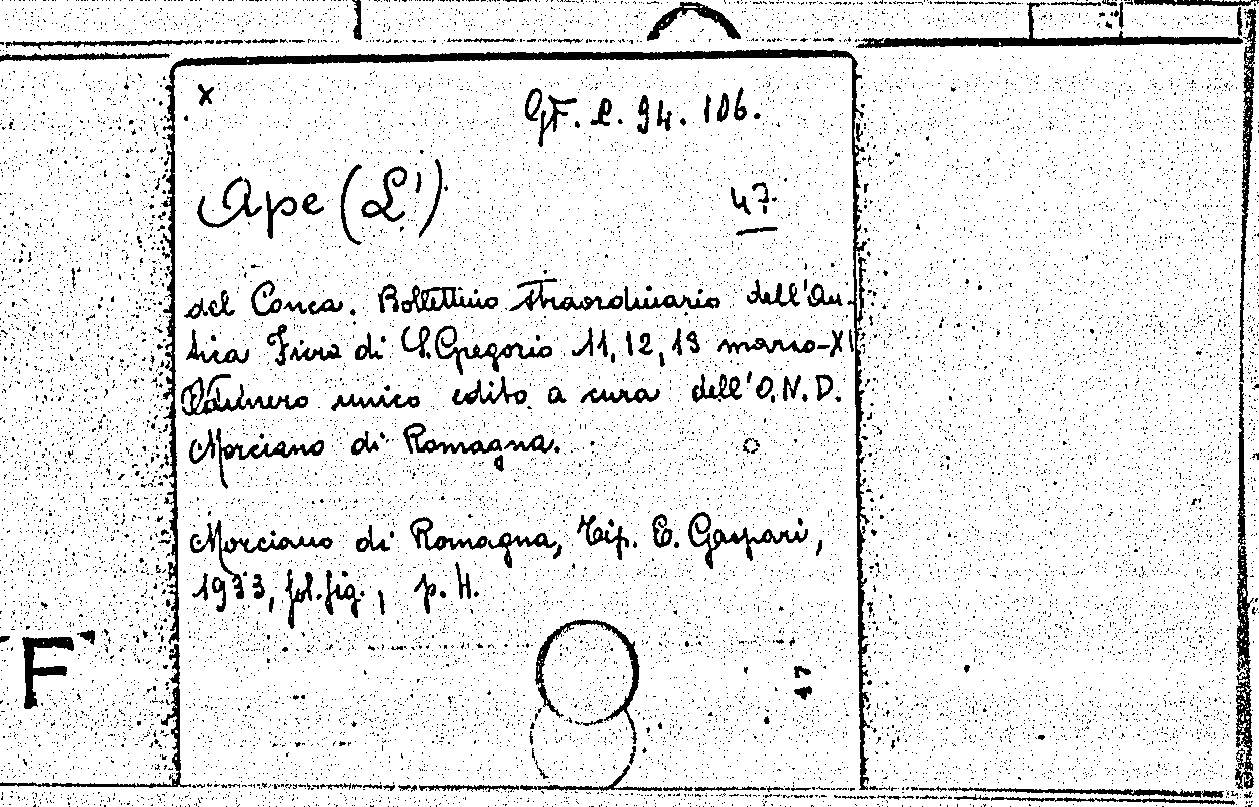 x
GF. C. 94. 106.
Ape (L')
47
del Conca. Bollettino straordinario dell'An-
tica Fiera di S. Gregorio 11, 12, 13 marzo-XI
Numero unico edito a cura dell'O.N.D.
Morciano di Romagna.
Morciano di Romagna, Tip. E. Gaspari,
1933, fol. fig., p. 4.
F
47